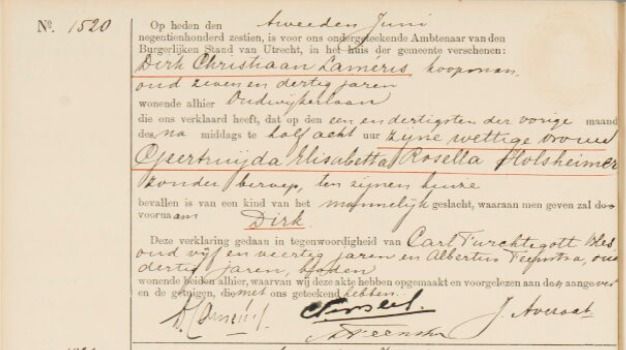 No. 1520
Op heden den tweeden Juni
negentienhonderd zestien, is voor ons ondergeteekende Ambtenaar van den
Burgerlijken Stand van Utrecht, in het huis der gemeente verschenen:
Dirk Christiaan Laméris, koopman,
oud zeven en dertig jaren
wonende alhier Oudwijkerlaan
die ons verklaard heeft, dat op den een en dertigsten der vorige maand
des na middags te half acht uur zijne wettige vrouw
Geertruijda Elisabetha Rosella Holsheimer
zonder beroep, ten zijnen huize
bevallen is van een kind van het mannelijk geslacht, waaraan men geven zal de
voornaam Dirk.
Deze verklaring gedaan in tegenwoordigheid van Carl Furchtegott
oud vijf en veertig jaren en Albertus Feenstra, oud
dertig jaren, boden
wonende beiden alhier, waarvan wij deze akte hebben opgemaakt en voorgelezen aan den aangever
en de getuigen, die met ons geteekend hebben.
D. Laméris
A Feenstra